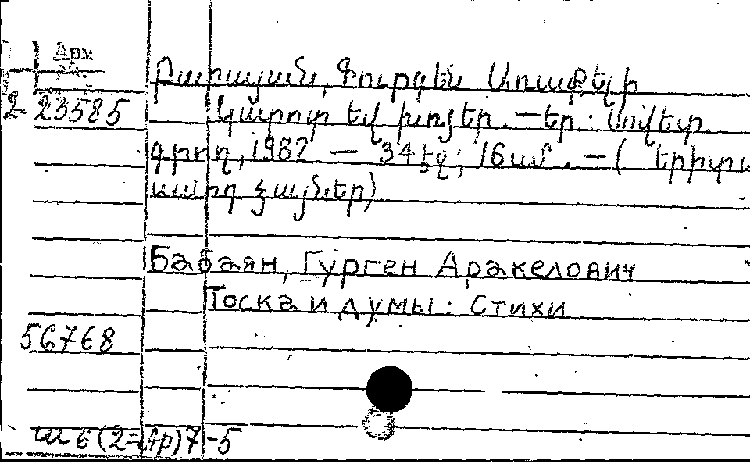 Арм
2 23585
Բաբայան, Գուրգեն Առաքելի
Կարոտ եվ խոհեր. — Եր.: Սովետ.
գրող, 1987 — 34 էջ; 16 սմ. — (Երիտա
սարդ ձայներ)
Бабаян, Гурген Аракелович
Тоска и думы: Стихи
56768
(2=Ар)7-5